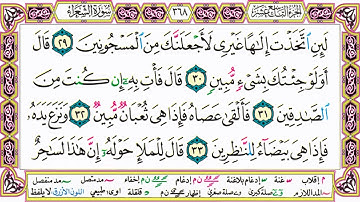 الجزء التاسع عشر ٣٦٨ سورة الشعراء
لَئِنِ ٱتَّخَذْتَ إِلَٰهًا غَيْرِى لَأَجْعَلَنَّكَ مِنَ ٱلْمَسْجُونِينَ ٢٩ قَالَ
أَوَلَوْ جِئْتُكَ بِشَىْءٍ مُّبِينٍ ٣٠ قَالَ فَأْتِ بِهِۦٓ إِن كُنتَ مِنَ
ٱلصَّٰدِقِينَ ٣١ فَأَلْقَىٰ عَصَاهُ فَإِذَا هِىَ ثُعْبَانٌ مُّبِينٌ ٣٢ وَنَزَعَ يَدَهُۥ
فَإِذَا هِىَ بَيْضَآءُ لِلنَّٰظِرِينَ ٣٣ قَالَ لِلْمَلَإِ حَوْلَهُۥٓ إِنَّ هَٰذَا لَسَٰحِرٌ